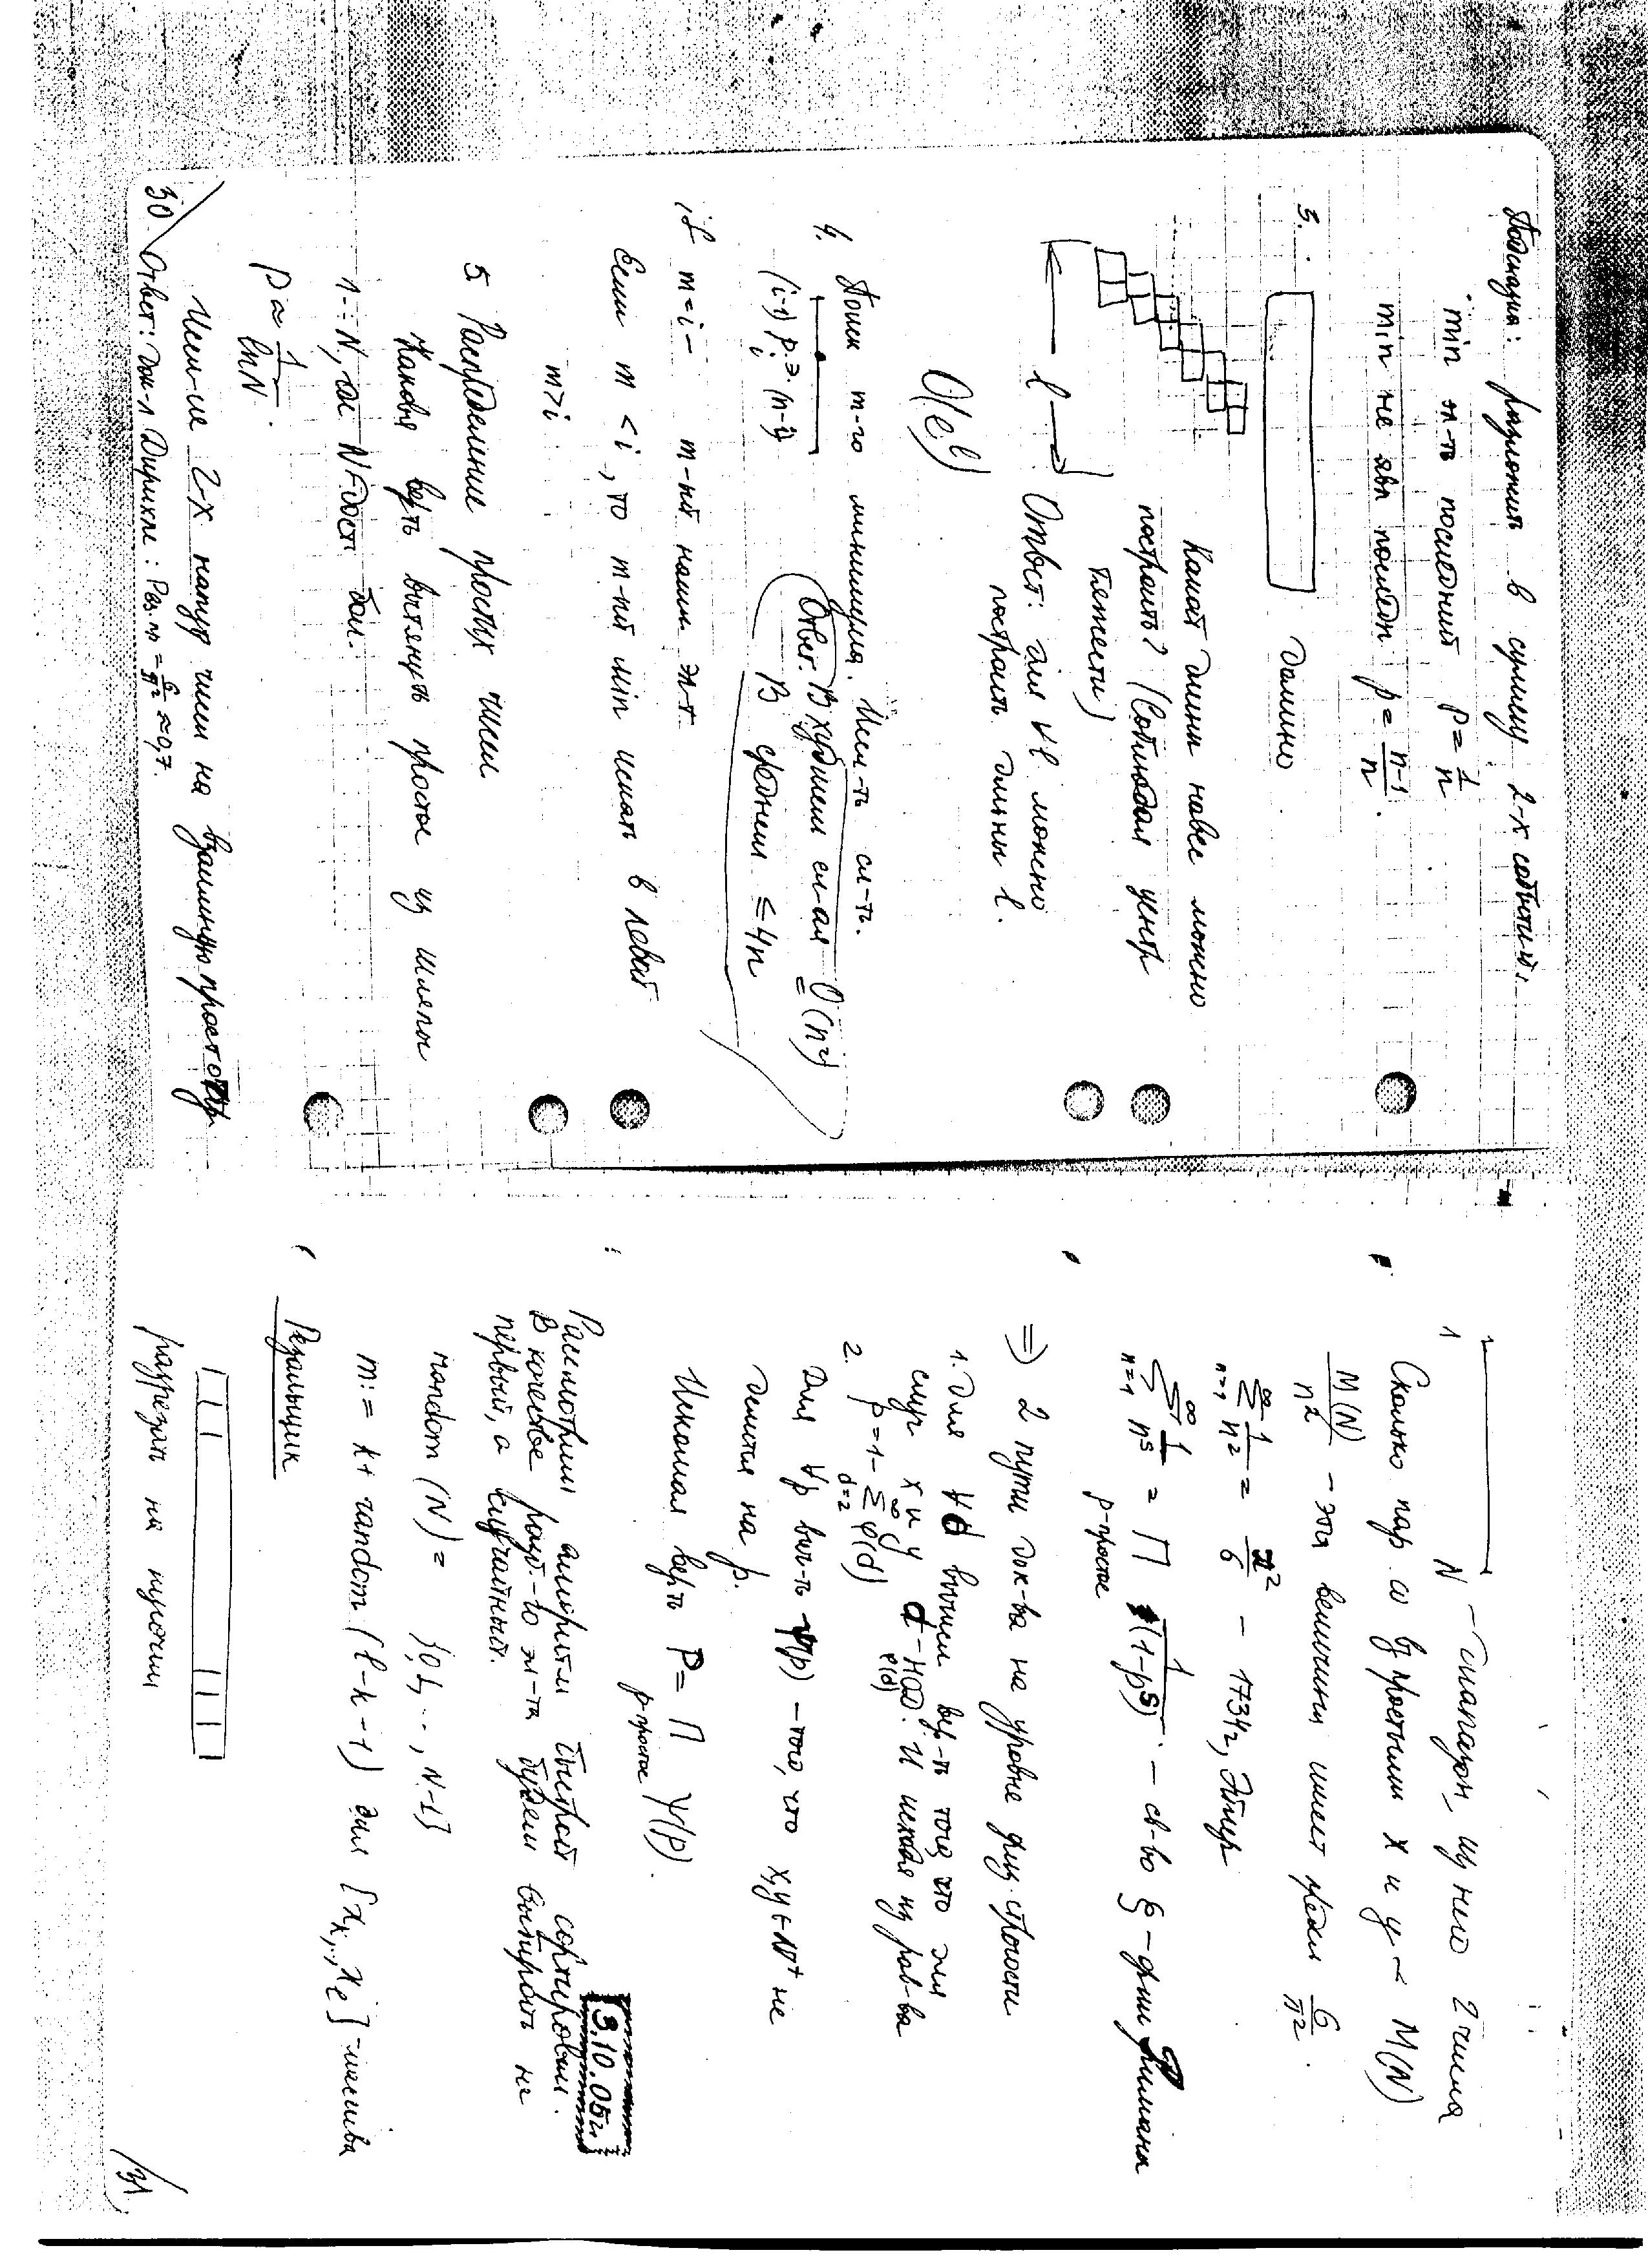 Подсказка: разложить в сумму 2-х событий.
min эл-ть последний P = 1/n
min не явл последн p = (n-1)/n.
3.
Домино
Какой длины навес можно
построить? (Соблюдая центр
тяжести)
l
Ответ: для ∀l можно
построить длины l.
O(e^l)
4. Поиск m-го минимума. Исп-ть сл-ть.
(i-1) р.э. (m-i)
i
Ответ. В худшем сл-ая O(n²)
В среднем ≤ 4n
if m = i - m-ый нашли эл-т.
Если m < i, то m-ый min искать в левой
m > i
5 Распределение простых чисел
Какова вер-ть вытянуть простое из шляпы
1...N, где N-дост. бол.
P ≈ 1/lnN.
Исп-ие 2-х натур чисел на взаимную простоту
30. Ответ: док-л Дирихле: Рвз.пр = 6/π² ≈ 0,7.
1 N - диапазон, из него 2 числа
Сколько пар с вз простыми x и y ~ M(N)
M(N)/n² - эта величина имеет предел 6/π².
∞ Σ n=1 1/n² = π²/6 - 1734г, Эйлер
∞ Σ n=1 1/n^s = Π p-простое 1/(1-p^s) - св-во ξ-фции Римана
⇒ 2 пути док-ва на уровне физ. строгости
1. Для ∀d вычисл вер-ть того, что для
случ x и y d-НОД. И исходя из рав-ва
φ(d)
2. p = 1 - ∞ Σ d=2 φ(d)
Для ∀p выч-ть ψ(p) - того, что x, y ∈ N⁺ не
делится на p.
Искомая вер-ть P = Π p-простое ψ(p).
3.10.05г.
Рассмотрим алгоритм быстрой сортировки.
В качестве разд.-го эл-та будем выбирать не
первый, а случайный.
random (N) = {0,1,..., N-1}
m: = k + random (l-k-1) для [x_k,..., x_l] - массива
Резальщик
разрезать на кусочки
31